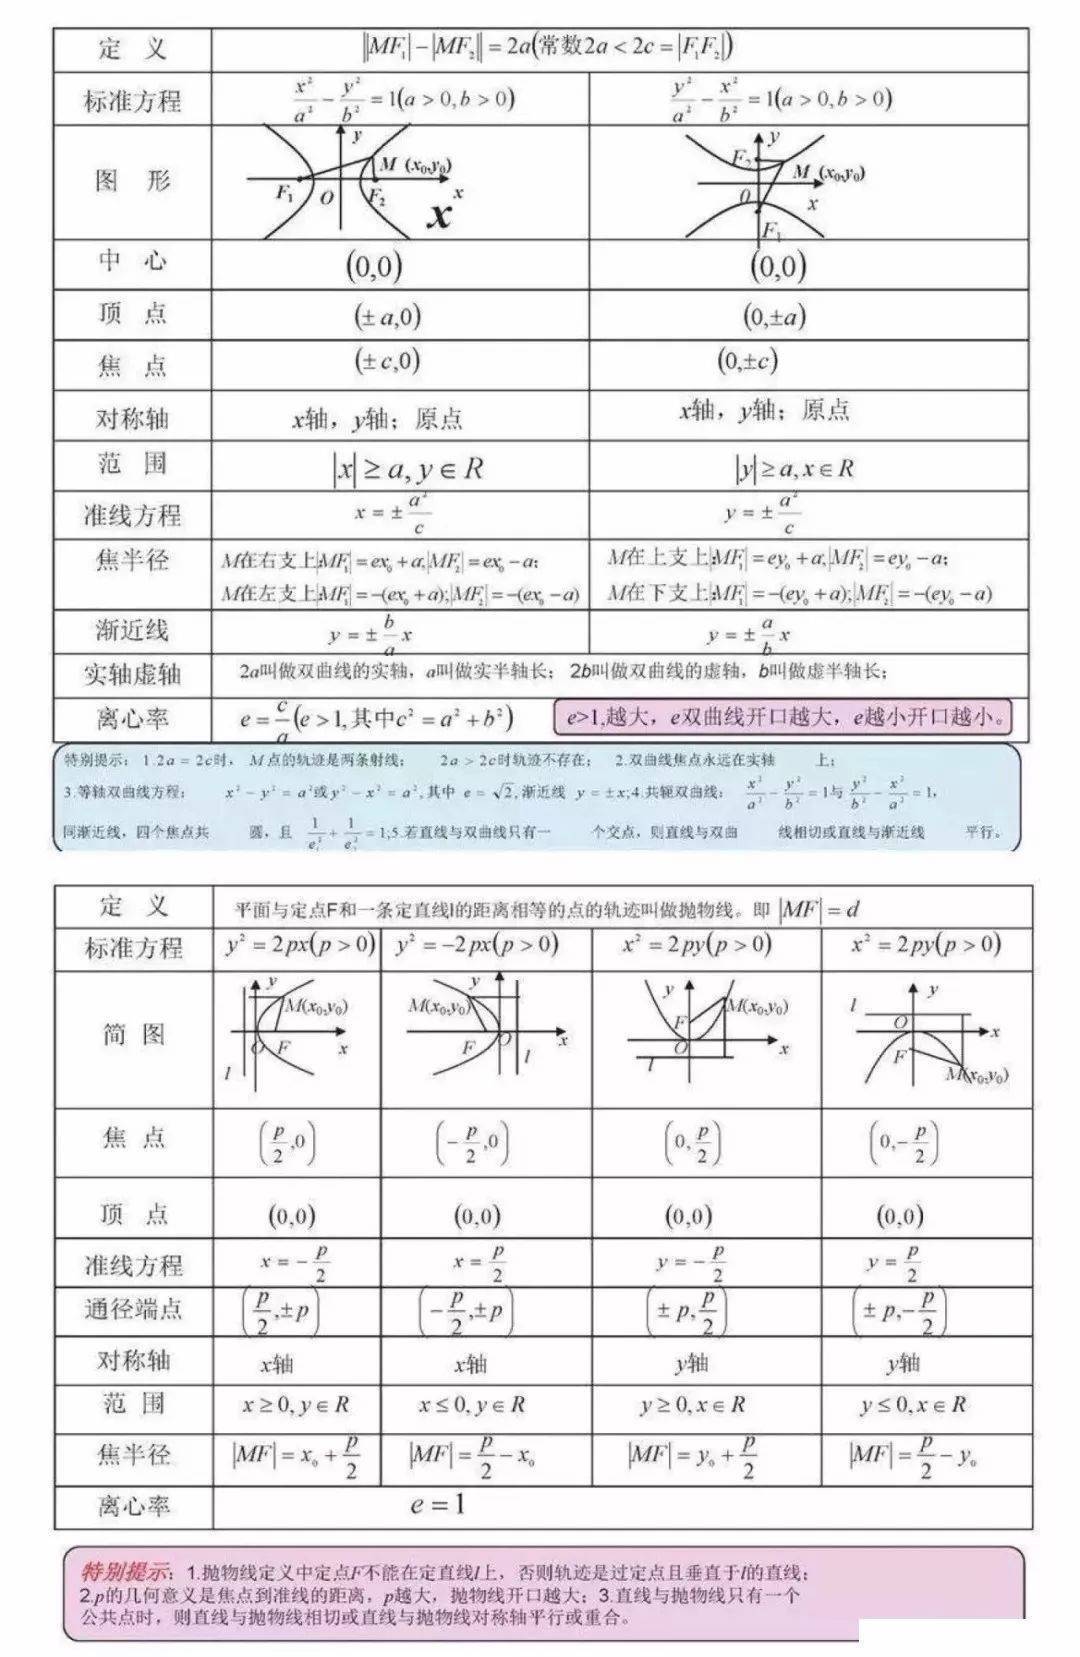 定 义 ||MF₁|-|MF₂||=2a(常数2a<2c=|F₁F₂|)
标准方程 x²/a² - y²/b² =1(a>0,b>0) y²/a² - x²/b² =1(a>0,b>0)
图 形 y M (x₀,y₀) F₁ O F₂ x x y F₂ M (x₀,y₀) 0 x F₁
中 心 (0,0) (0,0)
顶 点 (±a,0) (0,±a)
焦 点 (±c,0) (0,±c)
对称轴 x轴，y轴；原点 x轴，y轴；原点
范 围 |x|≥a,y∈R |y|≥a,x∈R
准线方程 x=±a²/c y=±a²/c
焦半径 M在右支上|MF₁|=ex₀+a,|MF₂|=ex₀-a; M在上支上|MF₁|=ey₀+a,|MF₂|=ey₀-a;
M在左支上|MF₁|=-(ex₀+a);|MF₂|=-(ex₀-a) M在下支上|MF₁|=-(ey₀+a);|MF₂|=-(ey₀-a)
渐近线 y=±b/a x y=±a/b x
实轴虚轴 2a叫做双曲线的实轴，a叫做实半轴长；2b叫做双曲线的虚轴，b叫做虚半轴长；
离心率 e=c/a(e>1,其中c²=a²+b²) e>1,越大，e双曲线开口越大，e越小开口越小。
特别提示：1.2a=2c时，M点的轨迹是两条射线； 2a>2c时轨迹不存在； 2.双曲线焦点永远在实轴 上；
3.等轴双曲线方程： x²-y²=a²或y²-x²=a²,其中 e=√2,渐近线 y=±x;4.共轭双曲线： x²/a² - y²/b² =1与 y²/b² - x²/a² =1,
同渐近线，四个焦点共 圆，且 1/e₁² + 1/e₂² =1;5.若直线与双曲线只有一 个交点，则直线与双曲 线相切或直线与渐近线 平行。
定 义 平面与定点F和一条定直线l的距离相等的点的轨迹叫做抛物线。即 |MF|=d
标准方程 y²=2px(p>0) y²=-2px(p>0) x²=2py(p>0) x²=2py(p>0)
简 图 y M(x₀,y₀) O F x l y M(x₀,y₀) F O l x y M(x₀,y₀) F O x l l y O x F M(x₀,y₀)
焦 点 (p/2,0) (-p/2,0) (0,p/2) (0,-p/2)
顶 点 (0,0) (0,0) (0,0) (0,0)
准线方程 x=-p/2 x=p/2 y=-p/2 y=p/2
通径端点 (p/2,±p) (-p/2,±p) (±p,p/2) (±p,-p/2)
对称轴 x轴 x轴 y轴 y轴
范 围 x≥0,y∈R x≤0,y∈R y≥0,x∈R y≤0,x∈R
焦半径 |MF|=x₀+p/2 |MF|=p/2-x₀ |MF|=y₀+p/2 |MF|=p/2-y₀
离心率 e=1
特别提示：1.抛物线定义中定点F不能在定直线l上，否则轨迹是过定点且垂直于l的直线；
2.p的几何意义是焦点到准线的距离，p越大，抛物线开口越大；3.直线与抛物线只有一个
公共点时，则直线与抛物线相切或直线与抛物线对称轴平行或重合。